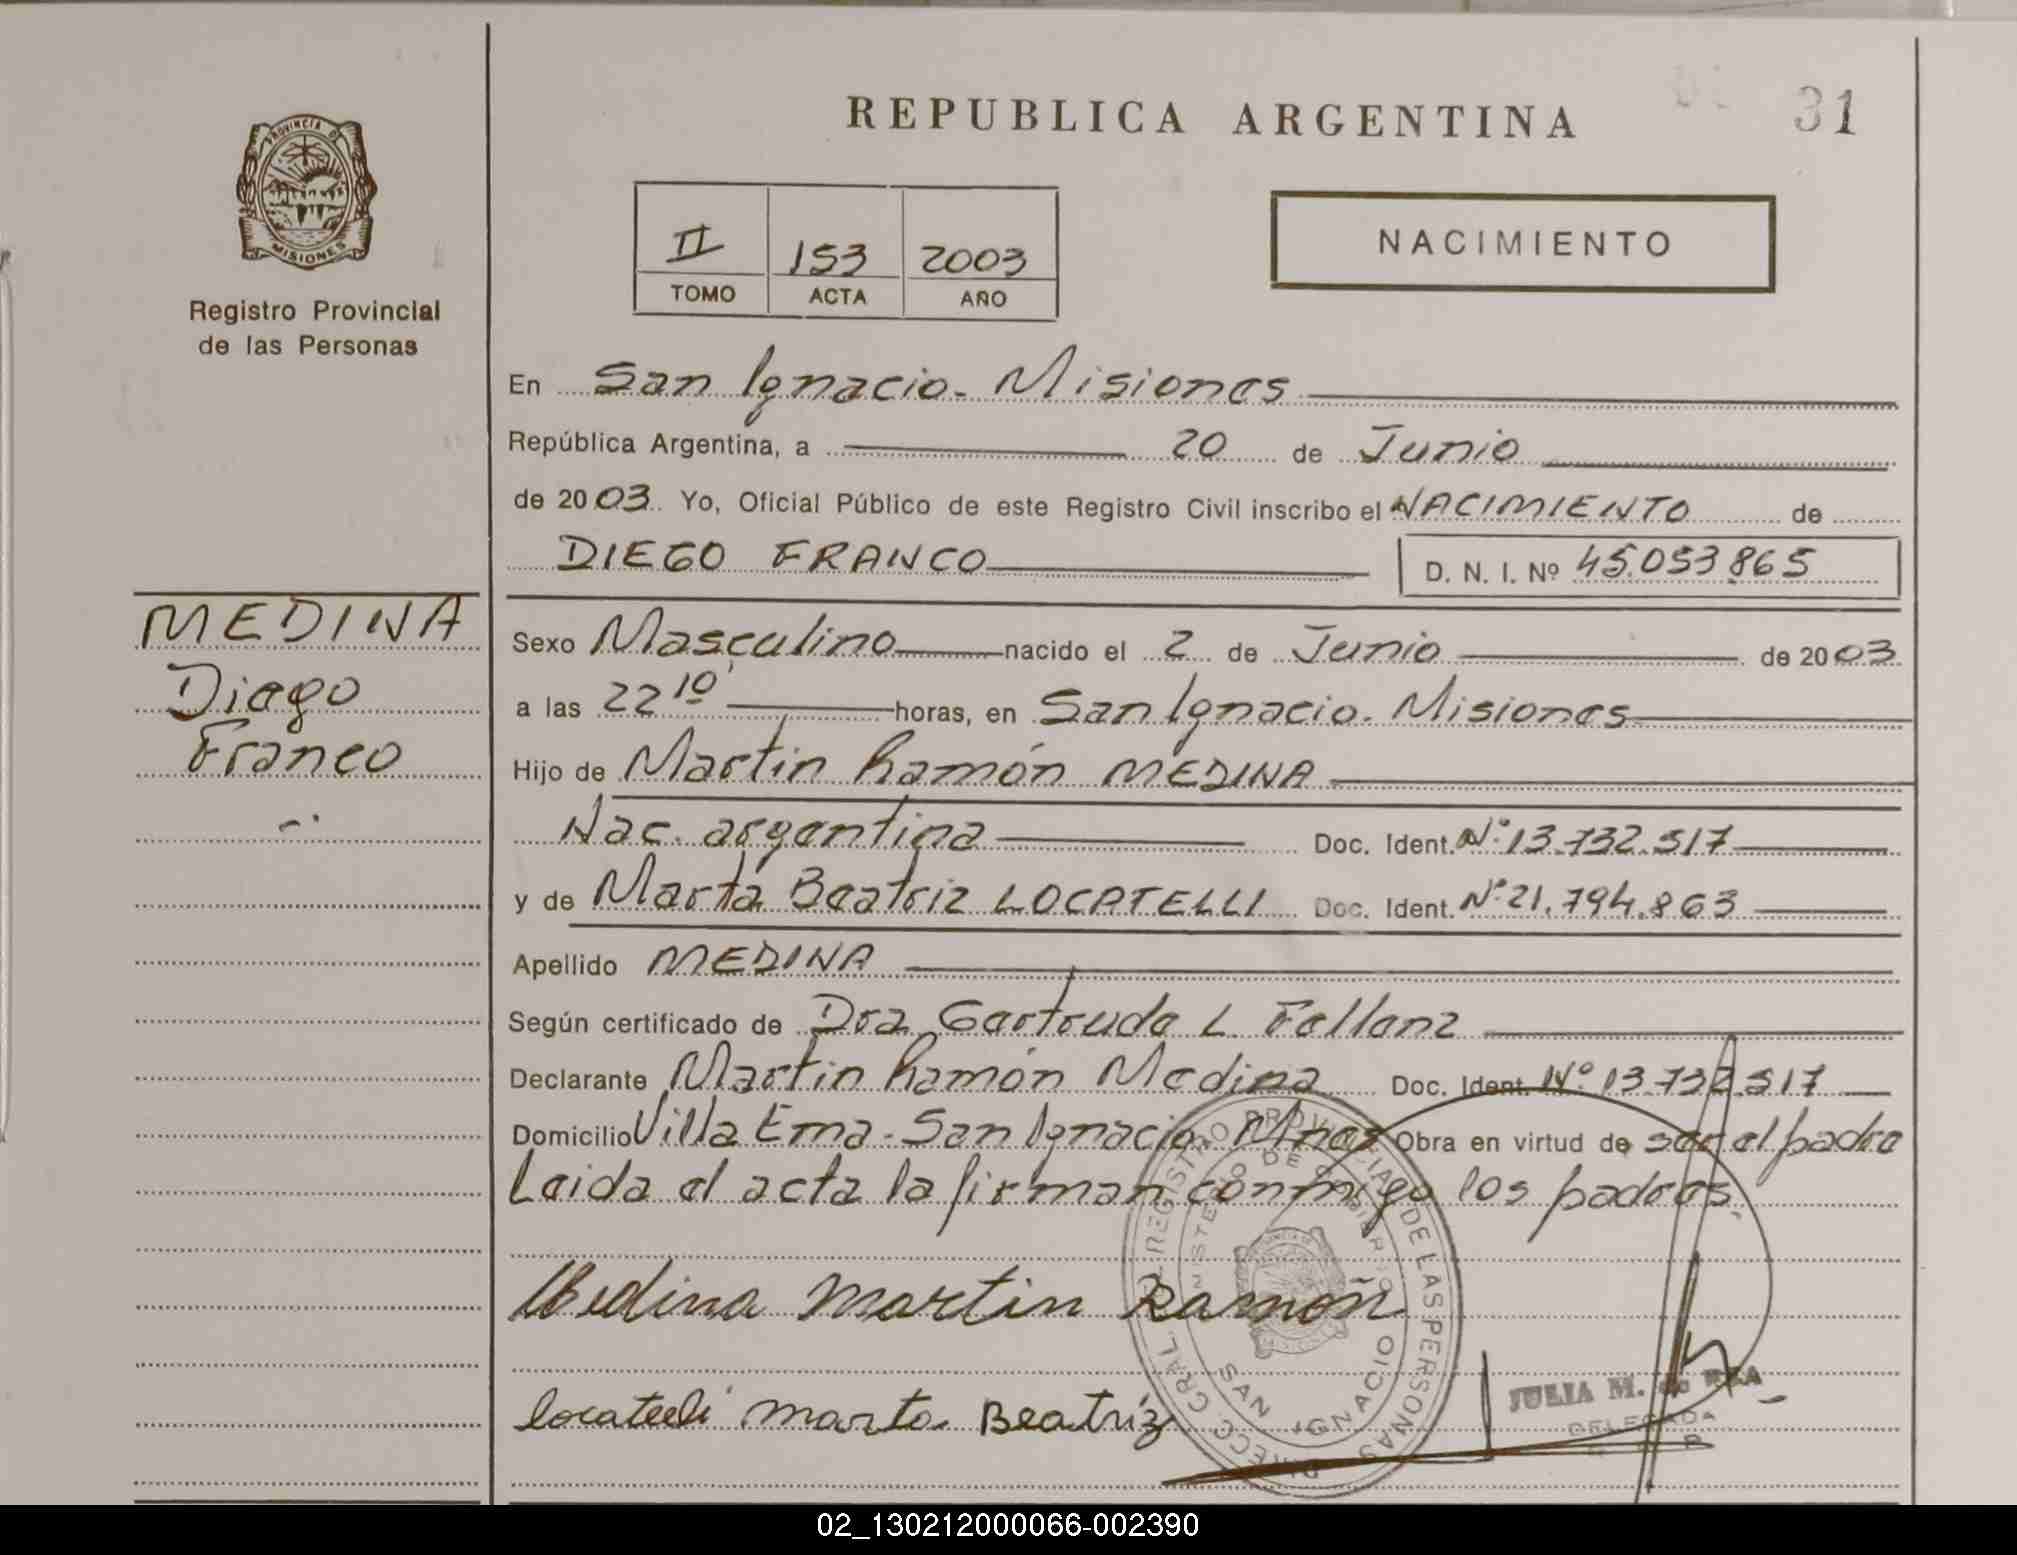 REPUBLICA ARGENTINA
31
PROVINCIA DE MISIONES
Registro Provincial
de las Personas
II 153 2003
TOMO ACTA AÑO
NACIMIENTO
En San Ignacio - Misiones
República Argentina, a 20 de Junio
de 2003. Yo, Oficial Público de este Registro Civil inscribo el NACIMIENTO de
DIEGO FRANCO D. N. I. Nº 45.053.865
MEDINA
Diego
Franco
Sexo Masculino nacido el 2 de Junio de 2003
a las 22 10' horas, en San Ignacio. Misiones
Hijo de Martín Ramón MEDINA
Nac. argentina Doc. Ident. Nº 13.732.517
y de Marta Beatriz LOCATELLI Doc. Ident. Nº 21.794.863
Apellido MEDINA
Según certificado de Dra. Gertrude L. Fellenz
Declarante Martín Ramón Medina Doc. Ident. Nº 13.732.517
Domicilio Villa Ema - San Ignacio. Mnes Obra en virtud de ser el padre
Leida el acta la firman conmigo los padres.
Medina Martin Ramoñ
Locatelli Marta Beatriz
DIRECC. GRAL. REGISTRO PROVINCIAL DE LAS PERSONAS
MINISTERIO DE GOBIERNO
SAN IGNACIO
JULIA M. de
DELEGADA
02_130212000066-002390